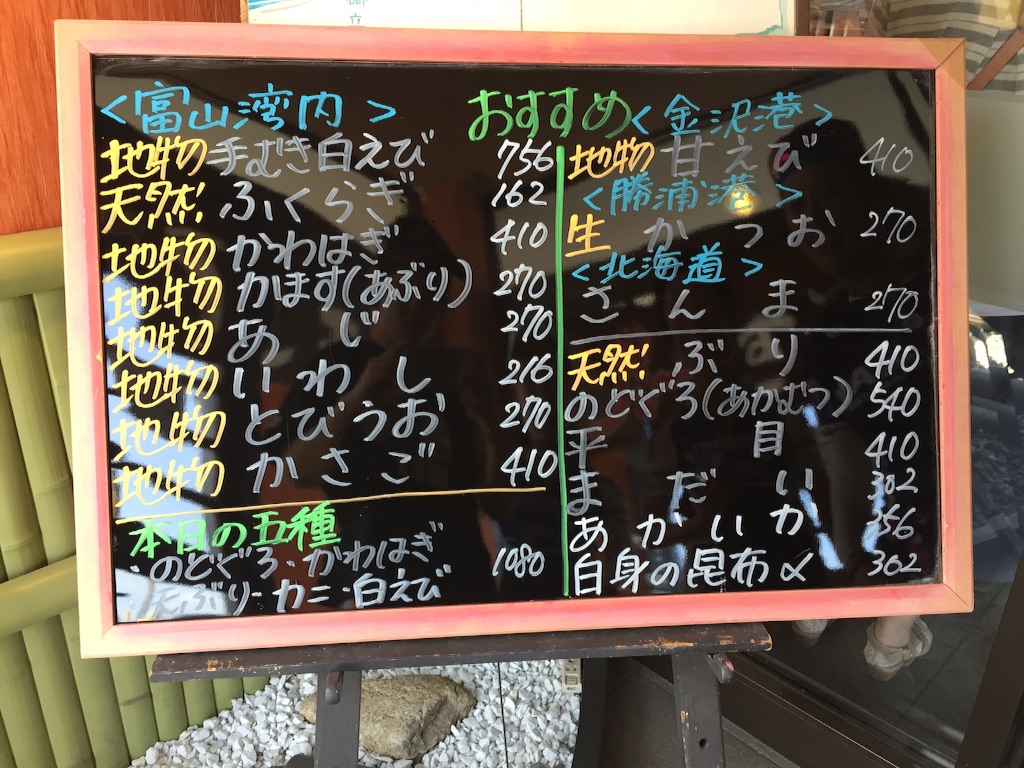 <富山湾内>
地物 手むき白えび 756
天然! ふくらぎ 162
地物 かわはぎ 410
地物 かます(あぶり) 270
地物 あじ 270
地物 いわし 216
地物 とびうお 270
地物 かさご 410
本日の五種
・のどぐろ・かわはぎ
・天ぶり・カニ・白えび 1080
おすすめ <金沢港>
地物 甘えび 410
<勝浦港>
生 かつお 270
<北海道>
さんま 270
天然! ぶり 410
のどぐろ(あかむつ) 540
平目 410
まだい 302
あかいか
白身の昆布〆 302